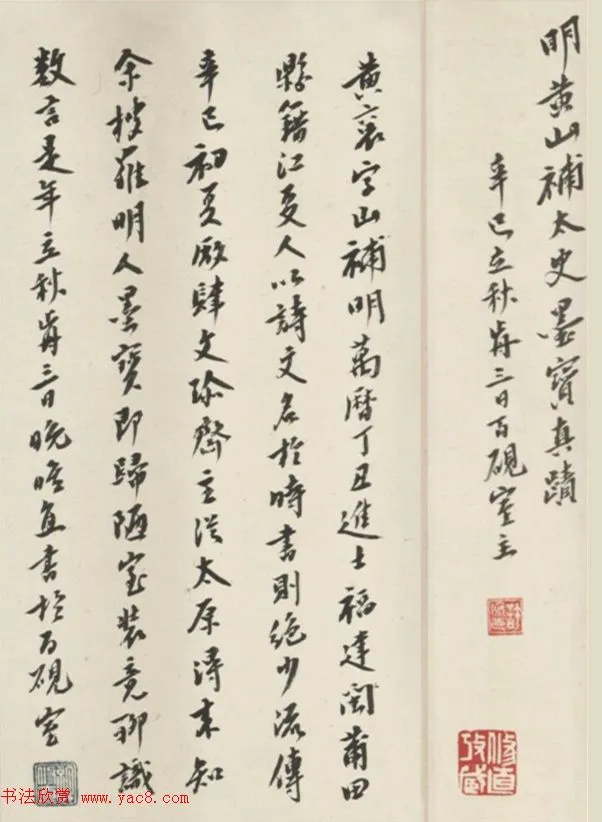 明黃山補太史墨寶真蹟
辛巳立秋前三日百硯室主
修直攷藏
黃襄字山補明萬曆丁丑進士福建閩莆田
縣籍江夏人以詩文名於時書則絕少流傳
辛巳初夏廠肆文珍齋主從太原得來知
余搜羅明人墨寶即歸陋室裝竟聊識
數言是年立秋前三日晚直書於百硯室
书法欣赏 www.yac8.com